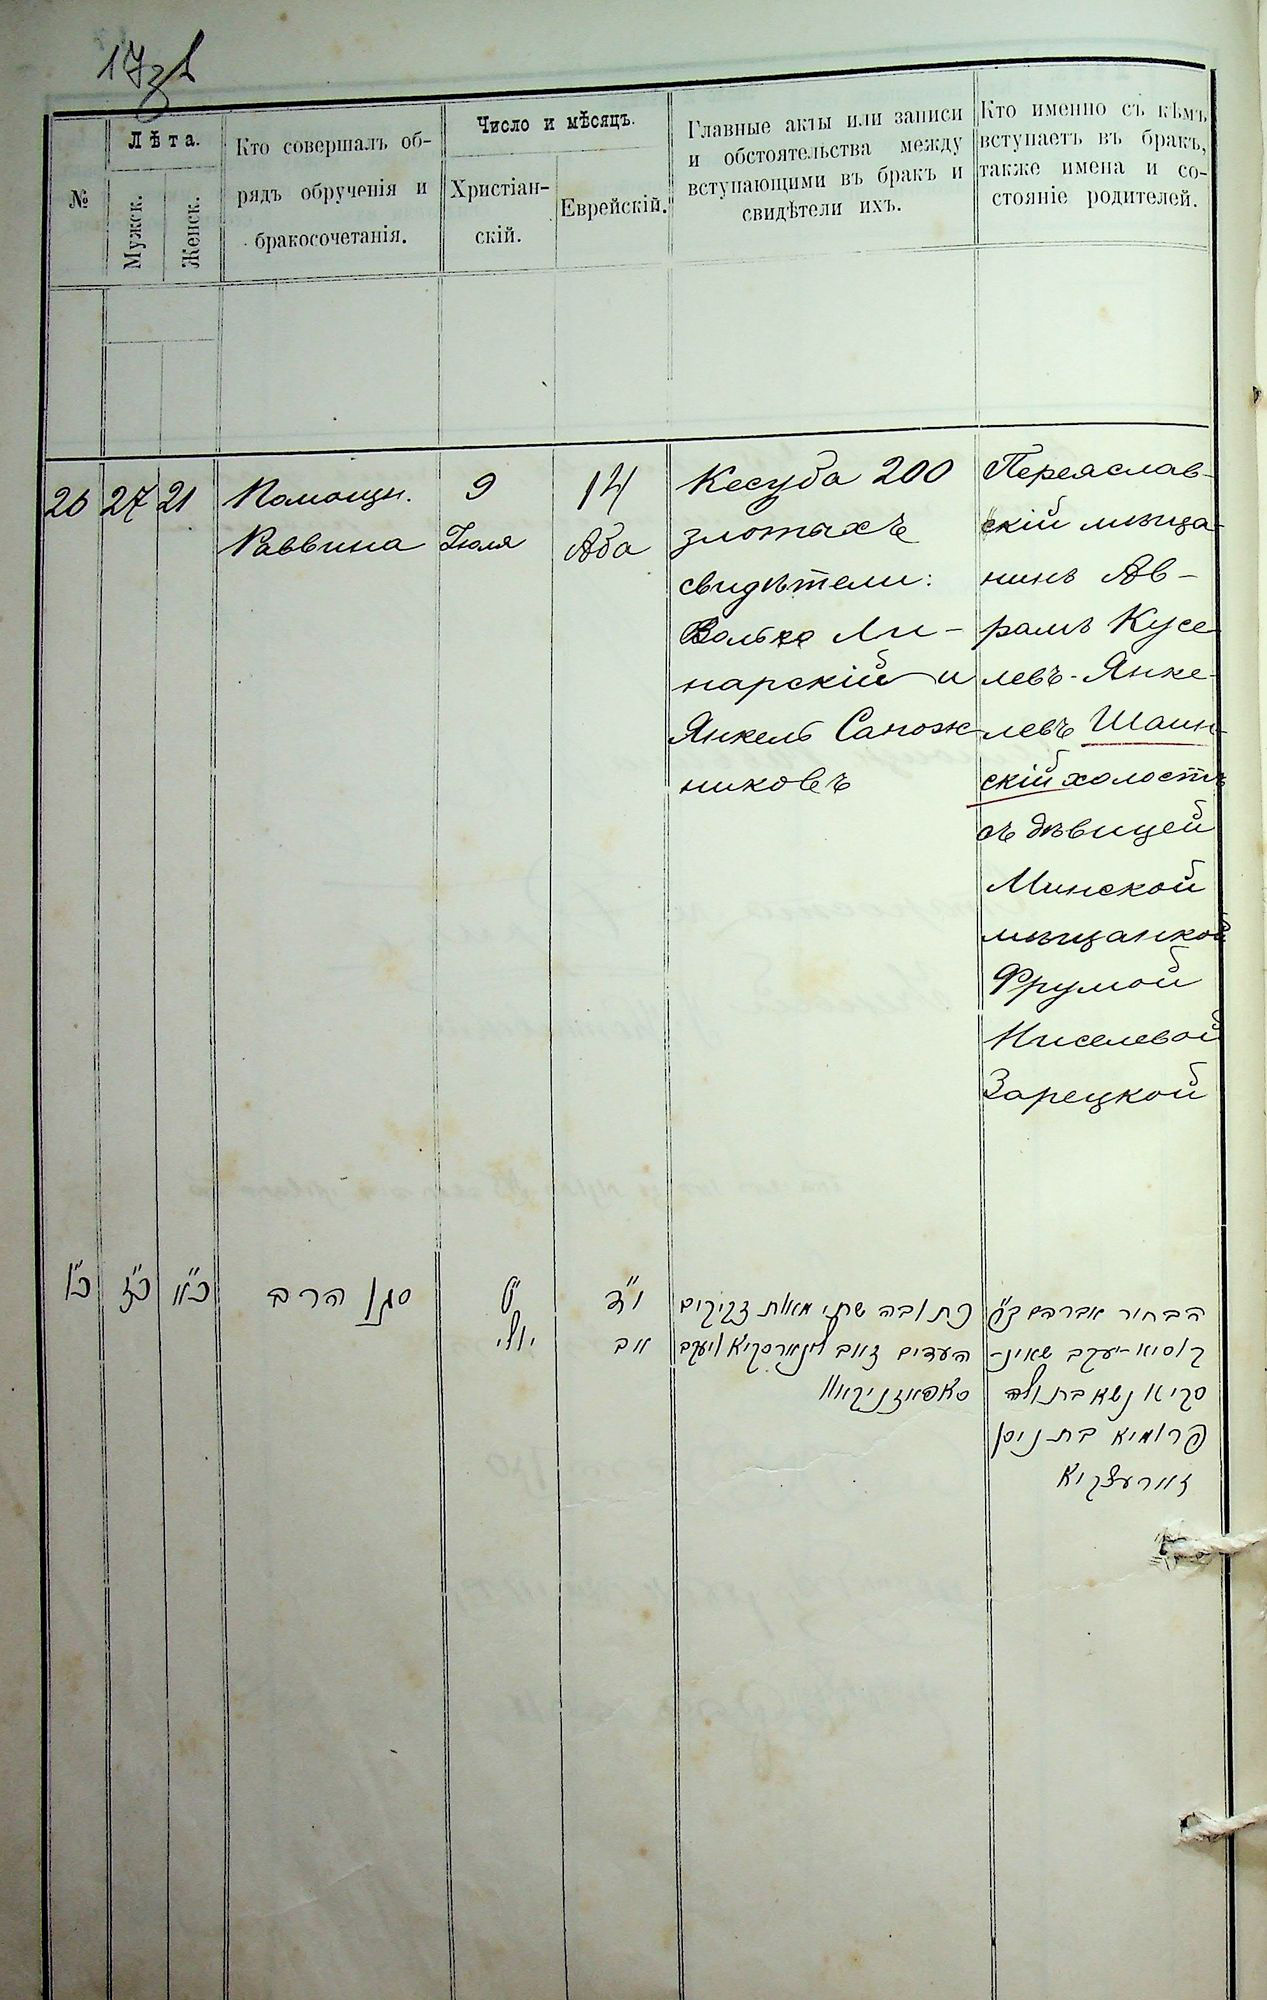 17зв
№
Лѣта.
Мужск.
Женск.
Кто совершалъ об-
рядъ обрученія и
бракосочетанія.
Число и мѣсяцъ.
Христіан-
скій.
Еврейскій.
Главные акты или записи
и обстоятельства между
вступающими въ бракъ и
свидѣтели ихъ.
Кто именно съ кѣмъ
вступаетъ въ бракъ,
также имена и со-
стояніе родителей.
26
27
21
Помощн.
Раввина
9
Іюля
14
Аба
Кесуба 200
злотыхъ
свидѣтели:
Волько Ли-
нарскій и
Янкель Сапож-
никовъ
Переяслав-
скій мѣща-
нинъ Ав-
рамъ Кусе-
левъ-Янке-
левъ Шаин-
скій холостъ
съ дѣвицей
Минской
мѣщанкой
Фрумой
Ниселевой
Зарецкой
כ"ו
כ"ז
כ"א
סגן הרב
ט"
יולי
י"ד
אב
כתובה שתי מאות זקוקים
העדים זאב לינארסקיא ויעקב
סאפאזניקאוו
הבחור אברהם ב"ר
קוסיא-יעקב שאינ-
סקיא נשא בתולה
פרומא בת ניסן
זארעצקיא